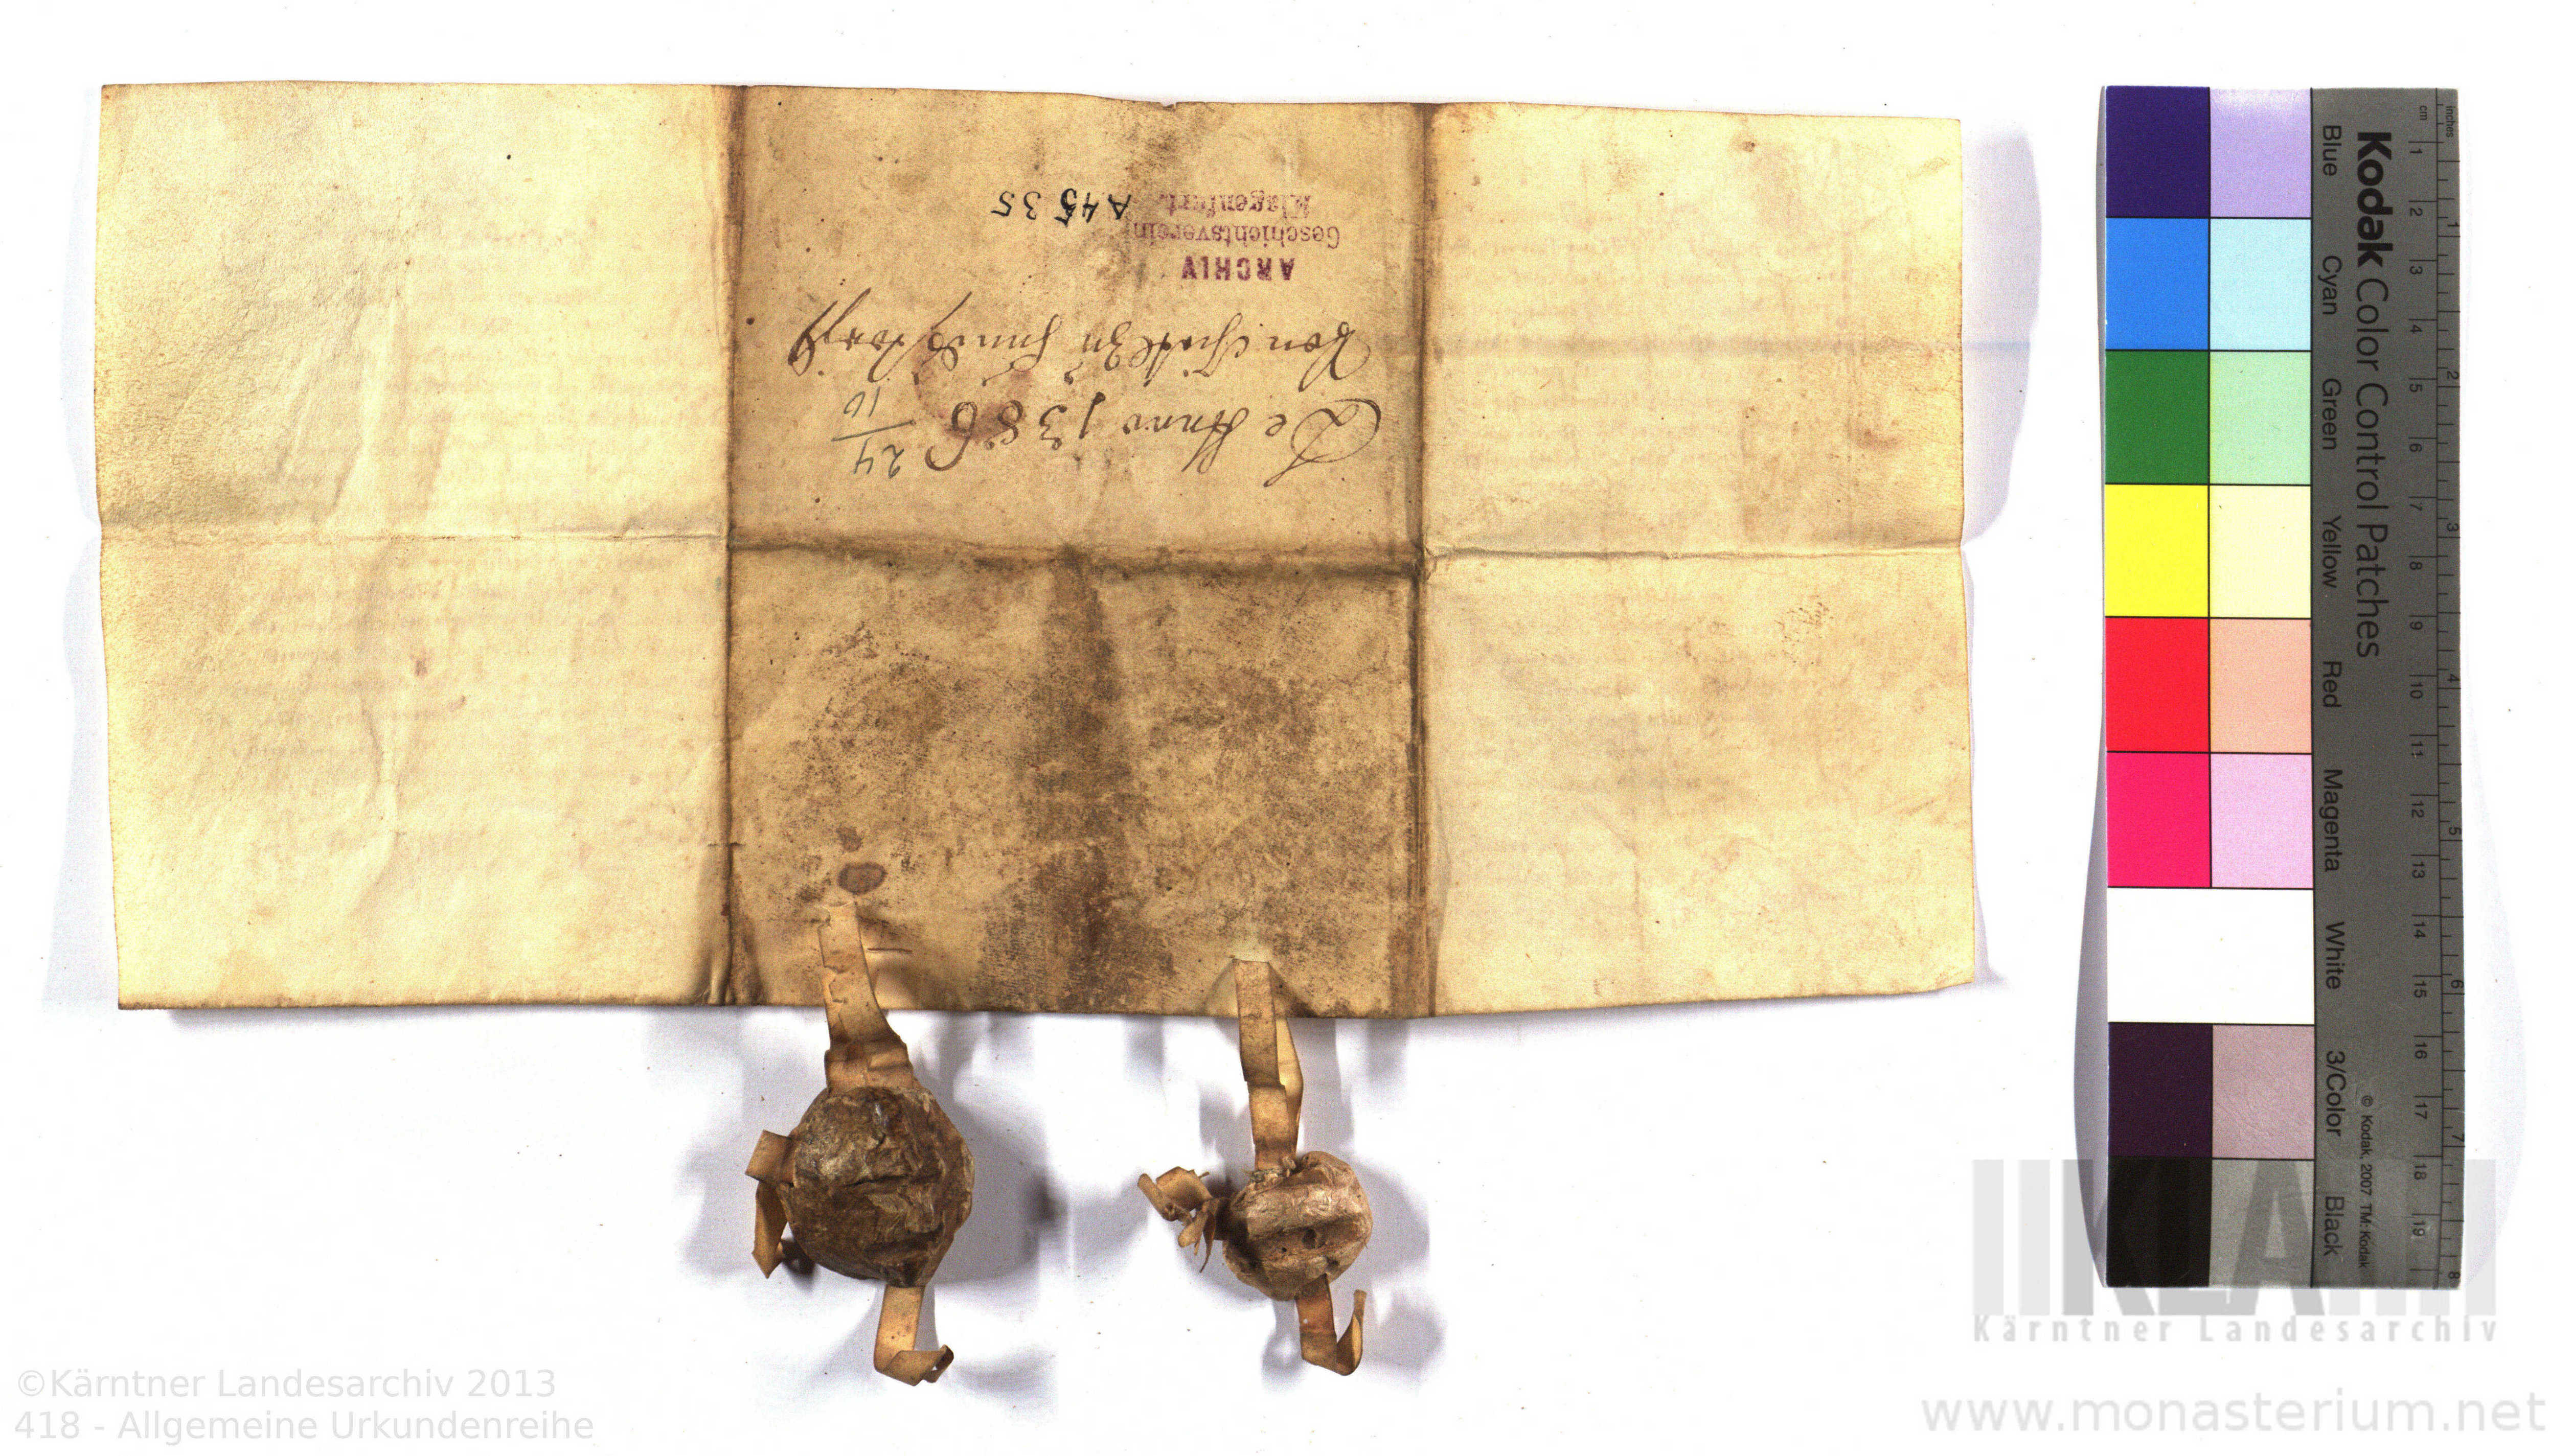 De Anno 1386
24
10
Von
ARCHIV
Geschichtsverein
Klagenfurt.
A 4535
Kodak Color Control Patches
Blue Cyan Green Yellow Red Magenta White 3/Color Black
© Kodak, 2007 TM: Kodak
inches
cm
1 2 3 4 5 6 7 8 9 10 11 12 13 14 15 16 17 18 19
1 2 3 4 5 6 7 8
KLA
Kärntner Landesarchiv
©Kärntner Landesarchiv 2013
418 - Allgemeine Urkundenreihe
www.monasterium.net